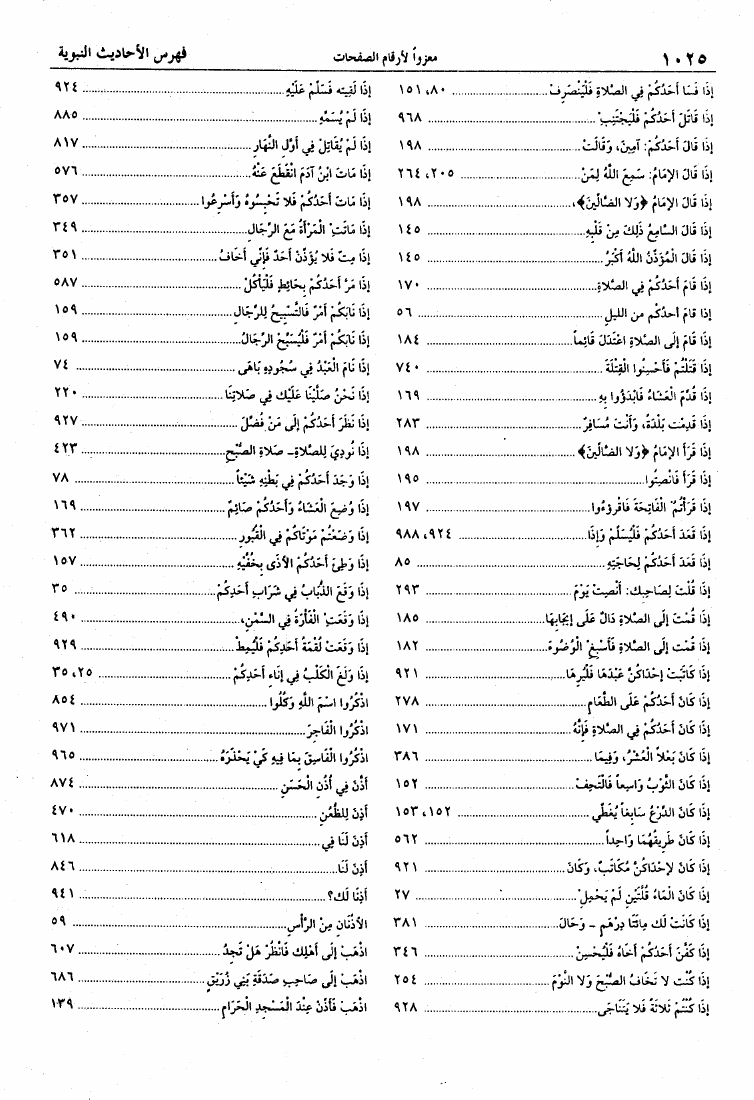 ١٠٢٥ معزواً لأرقام الصفحات فهرس الأحاديث النبوية
إِذَا فَسَا أَحَدُكُمْ فِي الصَّلاةِ فَلْيَنْصَرِفْ ........ ٨٠، ١٥١
إِذَا قَاتَلَ أَحَدُكُمْ فَلْيَجْتَنِبْ ........ ٩٦٨
إِذَا قَالَ أَحَدُكُمْ: آمِينَ، وَقَالَتْ ........ ١٩٨
إِذَا قَالَ الإِمَامُ: سَمِعَ اللَّهُ لِمَنْ ........ ٢٠٥، ٢٦٤
إِذَا قَالَ الإِمَامُ ﴿وَلا الضَّالِّينَ﴾، ........ ١٩٨
إِذَا قَالَ السَّامِعُ ذَلِكَ مِنْ قَلْبِهِ ........ ١٤٥
إِذَا قَالَ الْمُؤَذِّنُ اللَّهُ أَكْبَرُ ........ ١٤٥
إِذَا قَامَ أَحَدُكُمْ فِي الصَّلاةِ ........ ١٧٠
إذا قامَ أحدُكُم من الليلِ ........ ٥٦
إِذَا قَامَ إِلَى الصَّلاةِ اعْتَدَلَ قَائِماً ........ ١٨٤
إِذَا قَتَلْتُمْ فَأَحْسِنُوا الْقِتْلَةَ ........ ٧٤٠
إِذَا قُدِّمَ الْعَشَاءُ فَابْدَؤُوا بِهِ ........ ١٦٩
إِذَا قَدِمْتَ بَلْدَةً، وَأَنْتَ مُسَافِرٌ ........ ٢٨٣
إِذَا قَرَأَ الإِمَامُ ﴿وَلا الضَّالِّينَ﴾ ........ ١٩٨
إِذَا قَرَأَ فَانْصِتُوا ........ ١٩٥
إِذَا قَرَأْتُمْ الْفَاتِحَةَ فَاقْرَؤُوا ........ ١٩٧
إِذَا قَعَدَ أَحَدُكُمْ فَلْيُسَلِّمْ وَإِذَا ........ ٩٢٤، ٩٨٨
إِذَا قَعَدَ أَحَدُكُمْ لِحَاجَتِهِ ........ ٨٥
إِذَا قُلْتَ لِصَاحِبِكَ: أَنْصِتْ يَوْمَ ........ ٢٩٣
إِذَا قُمْتَ إِلَى الصَّلاةِ دَالٌ عَلَى إِيجَابِهَا ........ ١٨٥
إِذَا قُمْتَ إِلَى الصَّلاةِ فَأَسْبِغْ الْوُضُوءَ ........ ١٨٢
إِذَا كَاتَبَتْ إِحْدَاكُنَّ عَبْدَهَا فَلْيُرِهَا ........ ٩٢١
إِذَا كَانَ أَحَدُكُمْ عَلَى الطَّعَامِ ........ ٢٧٨
إِذَا كَانَ أَحَدُكُمْ فِي الصَّلاةِ فَإِنَّهُ ........ ١٧١
إِذَا كَانَ بَعْلاً الْعُشْرُ، وَفِيمَا ........ ٣٨٦
إِذَا كَانَ الثَّوْبُ وَاسِعاً فَالْتَحِفْ ........ ١٥٢
إِذَا كَانَ الدِّرْعُ سَابِغاً يُغَطِّي ........ ١٥٢، ١٥٣
إِذَا كَانَ طَرِيقُهُمَا وَاحِداً ........ ٥٦٢
إِذَا كَانَ لإِحْدَاكُنَّ مُكَاتَبٌ، وَكَانَ ........ ٩٢١
إِذَا كَانَ الْمَاءُ قُلَّتَيْنِ لَمْ يَحْمِلْ ........ ٢٧
إِذَا كَانَتْ لَكَ مِائَتَا دِرْهَمٍ - وَحَالَ ........ ٣٨١
إِذَا كَفَّنَ أَحَدُكُمْ أَخَاهُ فَلْيُحْسِنْ ........ ٣٤٦
إِذَا كُنْتَ لا تَخَافُ الصُّبْحَ وَلا النَّوْمَ ........ ٢٥٤
إِذَا كُنْتُمْ ثَلاثَةً فَلا يَتَنَاجَى ........ ٩٢٨
إِذَا لَقِيته فَسَلِّمْ عَلَيْهِ ........ ٩٢٤
إِذَا لَمْ يُسَمِّهِ ........ ٨٨٥
إِذَا لَمْ يُقَاتِلْ فِي أَوَّلِ النَّهَارِ ........ ٨١٧
إِذَا مَاتَ ابْنُ آدَمَ انْقَطَعَ عَنْهُ ........ ٥٧٦
إِذَا مَاتَ أَحَدُكُمْ فَلا تَحْبِسُوهُ وَأَسْرِعُوا ........ ٣٥٧
إِذَا مَاتَتِ الْمَرْأَةُ مَعَ الرِّجَالِ ........ ٣٤٩
إِذَا مِتّ فَلا يُؤَذِّنْ أَحَدٌ فَإِنِّي أَخَافُ ........ ٣٥١
إِذَا مَرَّ أَحَدُكُمْ بِحَائِطٍ فَلْيَأْكُلْ ........ ٥٨٧
إِذَا نَابَكُمْ أَمْرٌ فَالتَّسْبِيحُ لِلرِّجَالِ ........ ١٥٩
إِذَا نَابَكُمْ أَمْرٌ فَلْيُسَبِّحْ الرِّجَالُ ........ ١٥٩
إِذَا نَامَ الْعَبْدُ فِي سُجُودِهِ بَاهَى ........ ٧٤
إِذَا نَحْنُ صَلَّيْنَا عَلَيْك فِي صَلاتِنَا ........ ٢٢٠
إِذَا نَظَرَ أَحَدُكُمْ إِلَى مَنْ فُضِّلَ ........ ٩٢٧
إِذَا نُودِيَ لِلصَّلاةِ- صَلاةِ الصُّبْحِ ........ ٤٢٣
إِذَا وَجَدَ أَحَدُكُمْ فِي بَطْنِهِ شَيْئاً ........ ٧٨
إِذَا وُضِعَ الْعَشَاءُ وَأَحَدُكُمْ صَائِمٌ ........ ١٦٩
إِذَا وَضَعْتُمْ مَوْتَاكُمْ فِي الْقُبُورِ ........ ٣٦٢
إِذَا وَطِئَ أَحَدُكُمْ الأَذَى بِخُفَّيْهِ ........ ١٥٧
إِذَا وَقَعَ الذُّبَابُ فِي شَرَابِ أَحَدِكُمْ ........ ٣٥
إِذَا وَقَعَتْ الْفَأْرَةُ فِي السَّمْنِ، ........ ٤٩٠
إِذَا وَقَعَتْ لُقْمَةُ أَحَدِكُمْ فَلْيُمِطْ ........ ٩٢٩
إِذَا وَلَغَ الْكَلْبُ فِي إِنَاءِ أَحَدِكُمْ ........ ٢٥، ٣٥
اذْكُرُوا اسْمَ اللَّهِ وَكُلُوا ........ ٨٥٤
اذْكُرُوا الْفَاجِرَ ........ ٩٧١
اذْكُرُوا الْفَاسِقَ بِمَا فِيهِ كَيْ يَحْذَرَهُ ........ ٩٦٥
أَذَّنَ فِي أُذُنِ الْحَسَنِ ........ ٨٧٤
أَذِنَ لِلظُّعُنِ ........ ٤٧٠
أَذِنَ لَنَا فِي ........ ٦١٨
أَذِنَ لَنَا ........ ٨٤٦
أَذِنَا لَك؟ ........ ٩٤١
الأُذُنَانِ مِنْ الرَّأْسِ ........ ٥٩
اذْهَبْ إِلَى أَهْلِك فَانْظُرْ هَلْ تَجِدُ ........ ٦٠٧
اذْهَبْ إِلَى صَاحِبِ صَدَقَةِ بَنِي زُرَيْقٍ ........ ٦٨٦
اذْهَبْ فَأَذِّنْ عِنْدَ الْمَسْجِدِ الْحَرَامِ ........ ١٣٩